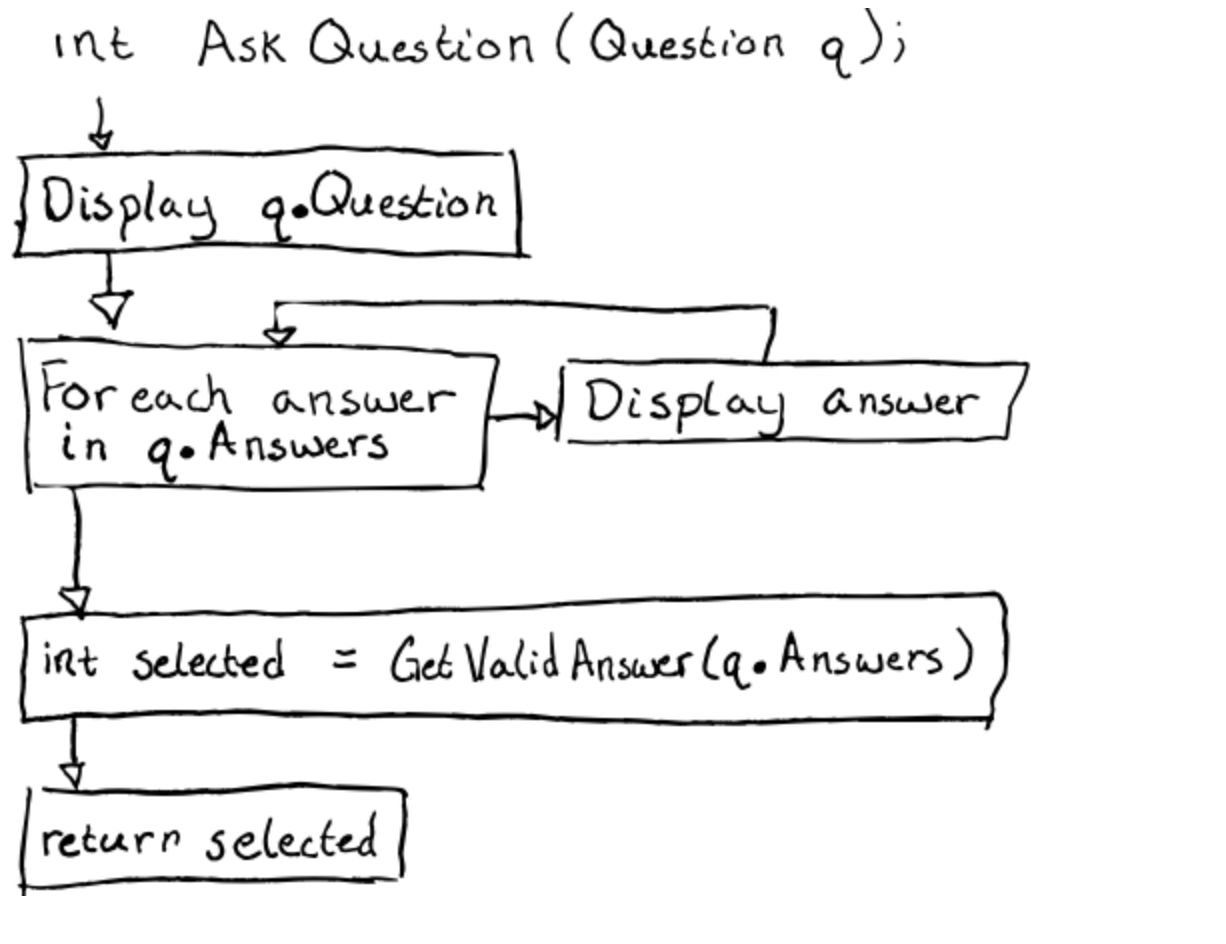 int AskQuestion(Question q);
Display q.Question
Foreach answer
in q.Answers
Display answer
int selected = GetValidAnswer(q.Answers)
return selected